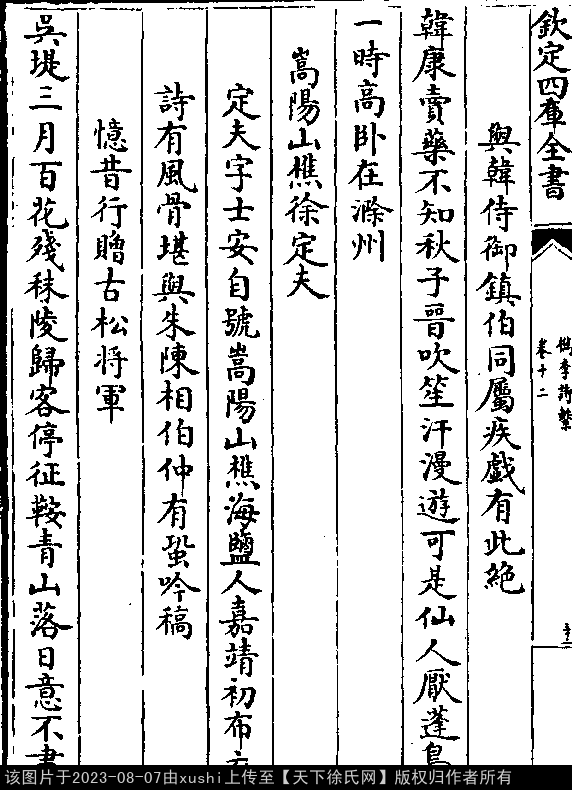 欽定四庫全書
檇李詩繫
卷十二
與韓侍御鎮伯同屬疾戲有此絶
韓康賣藥不知秋子晉吹笙汗漫遊可是仙人厭蓬島
一時高卧在滁州
嵩陽山樵徐定夫
定夫字士安自號嵩陽山樵海鹽人嘉靖初布衣
詩有風骨堪與朱陳相伯仲有蛩吟稿
憶昔行贈古松将軍
吳堤三月百花殘秣陵歸客停征鞍青山落日意不盡
该图片于2023-08-07由xushi上传至【天下徐氏网】版权归作者所有